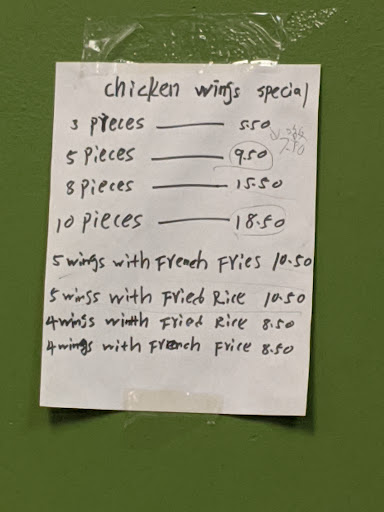 chicken wings special
3 pieces 5.50
5 pieces 9.50
7.50
8 pieces 15.50
10 pieces 18.50
5 wings with French Fries 10.50
5 wings with Fried Rice 10.50
4 wings with Fried Rice 8.50
4 wings with French Frice 8.50